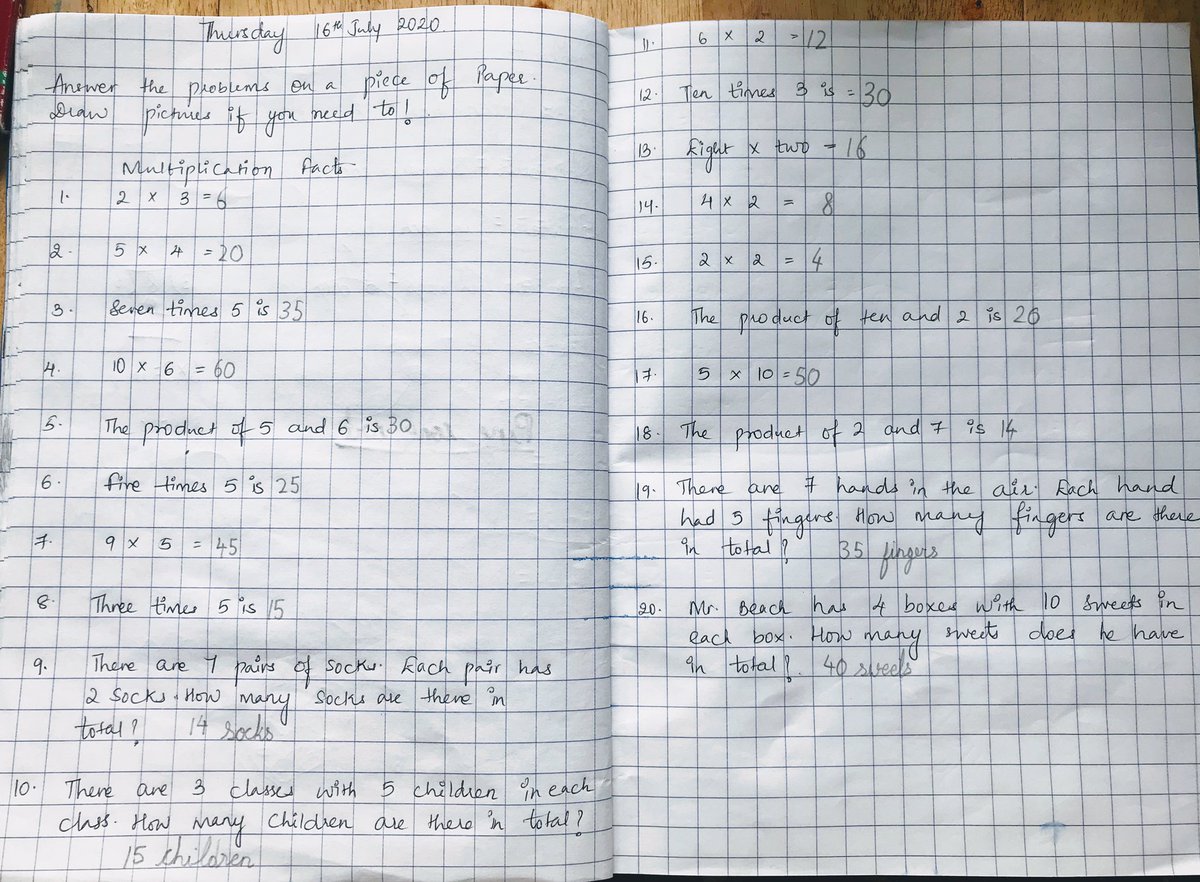 Thursday 16th July 2020
Answer the problems on a piece of Paper.
Draw pictures if you need to!
Multiplication facts
1. 2 × 3 = 6
2. 5 × 4 = 20
3. Seven times 5 is 35
4. 10 × 6 = 60
5. The product of 5 and 6 is 30
6. five times 5 is 25
7. 9 × 5 = 45
8. Three times 5 is 15
9. There are 7 pairs of socks. Each pair has
2 Socks. How many socks are there in
total? 14 socks
10. There are 3 classes with 5 children in each
class. How many children are there in total?
15 children
11. 6 × 2 = 12
12. Ten times 3 is = 30
13. Eight × two = 16
14. 4 × 2 = 8
15. 2 × 2 = 4
16. The product of ten and 2 is 20
17. 5 × 10 = 50
18. The product of 2 and 7 is 14
19. There are 7 hands in the air. Each hand
had 5 fingers. How many fingers are there
in total? 35 fingers
20. Mr. Beach has 4 boxes with 10 sweets in
each box. How many sweets does he have
in total? 40 sweets